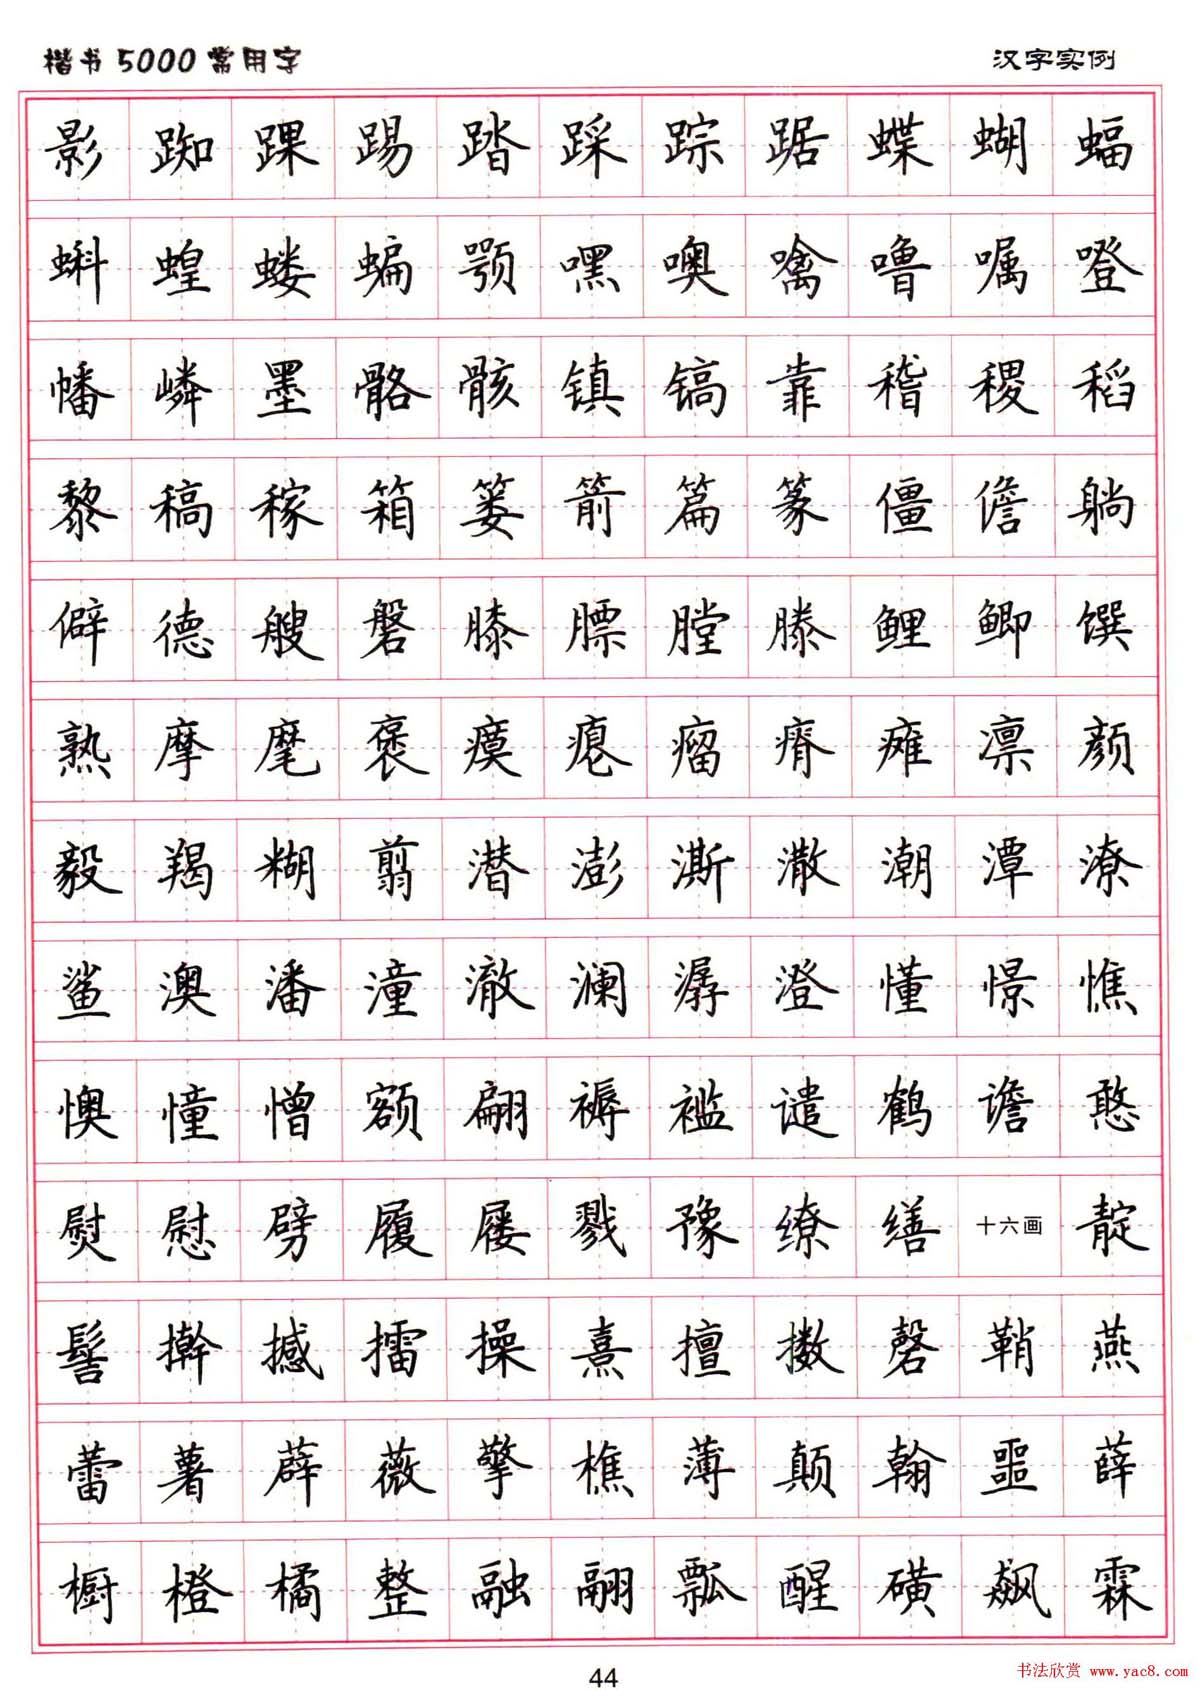 楷书5000常用字 汉字实例
影 踟 踝 踢 踏 踩 踪 踞 蝶 蝴 蝠
蝌 蝗 蝼 蝙 颚 嘿 噢 噙 噜 嘱 噔
幡 嶙 墨 骼 骸 镇 镐 靠 稽 稷 稻
黎 稿 稼 箱 篓 箭 篇 篆 僵 儋 躺
僻 德 艘 磐 膝 膘 膛 滕 鲤 鲫 馔
熟 摩 麾 褒 瘼 瘪 瘤 瘠 瘫 凛 颜
毅 羯 糊 翦 潜 澎 澌 潵 潮 潭 潦
鲨 澳 潘 潼 澈 澜 潺 澄 懂 憬 憔
懊 憧 憎 额 翩 褥 褴 谴 鹤 谵 憨
熨 慰 劈 履 屦 戮 豫 缭 缮 十六画 靛
髻 擀 撼 擂 操 熹 擅 擞 磬 鞘 燕
蕾 薯 薜 薇 擎 樵 薄 颠 翰 噩 薛
橱 橙 橘 整 融 翮 瓢 醒 磺 飙 霖
44
书法欣赏 www.yac8.com